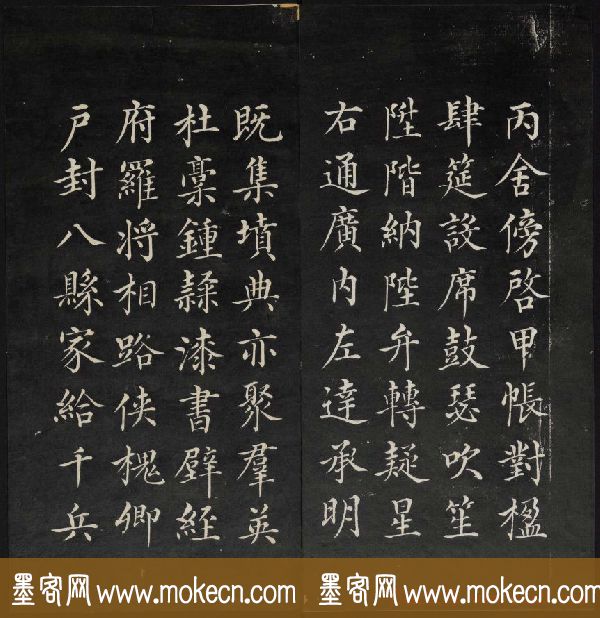 丙舍傍啓甲帳對楹
肆筵設席鼓瑟吹笙
陞階納陛弁轉疑星
右通廣内左達承明
既集墳典亦聚羣英
杜稾鍾隸漆書壁經
府羅将相路侠槐卿
戶封八縣家給千兵
墨客网 www.mokecn.com 墨客网 www.mokecn.com